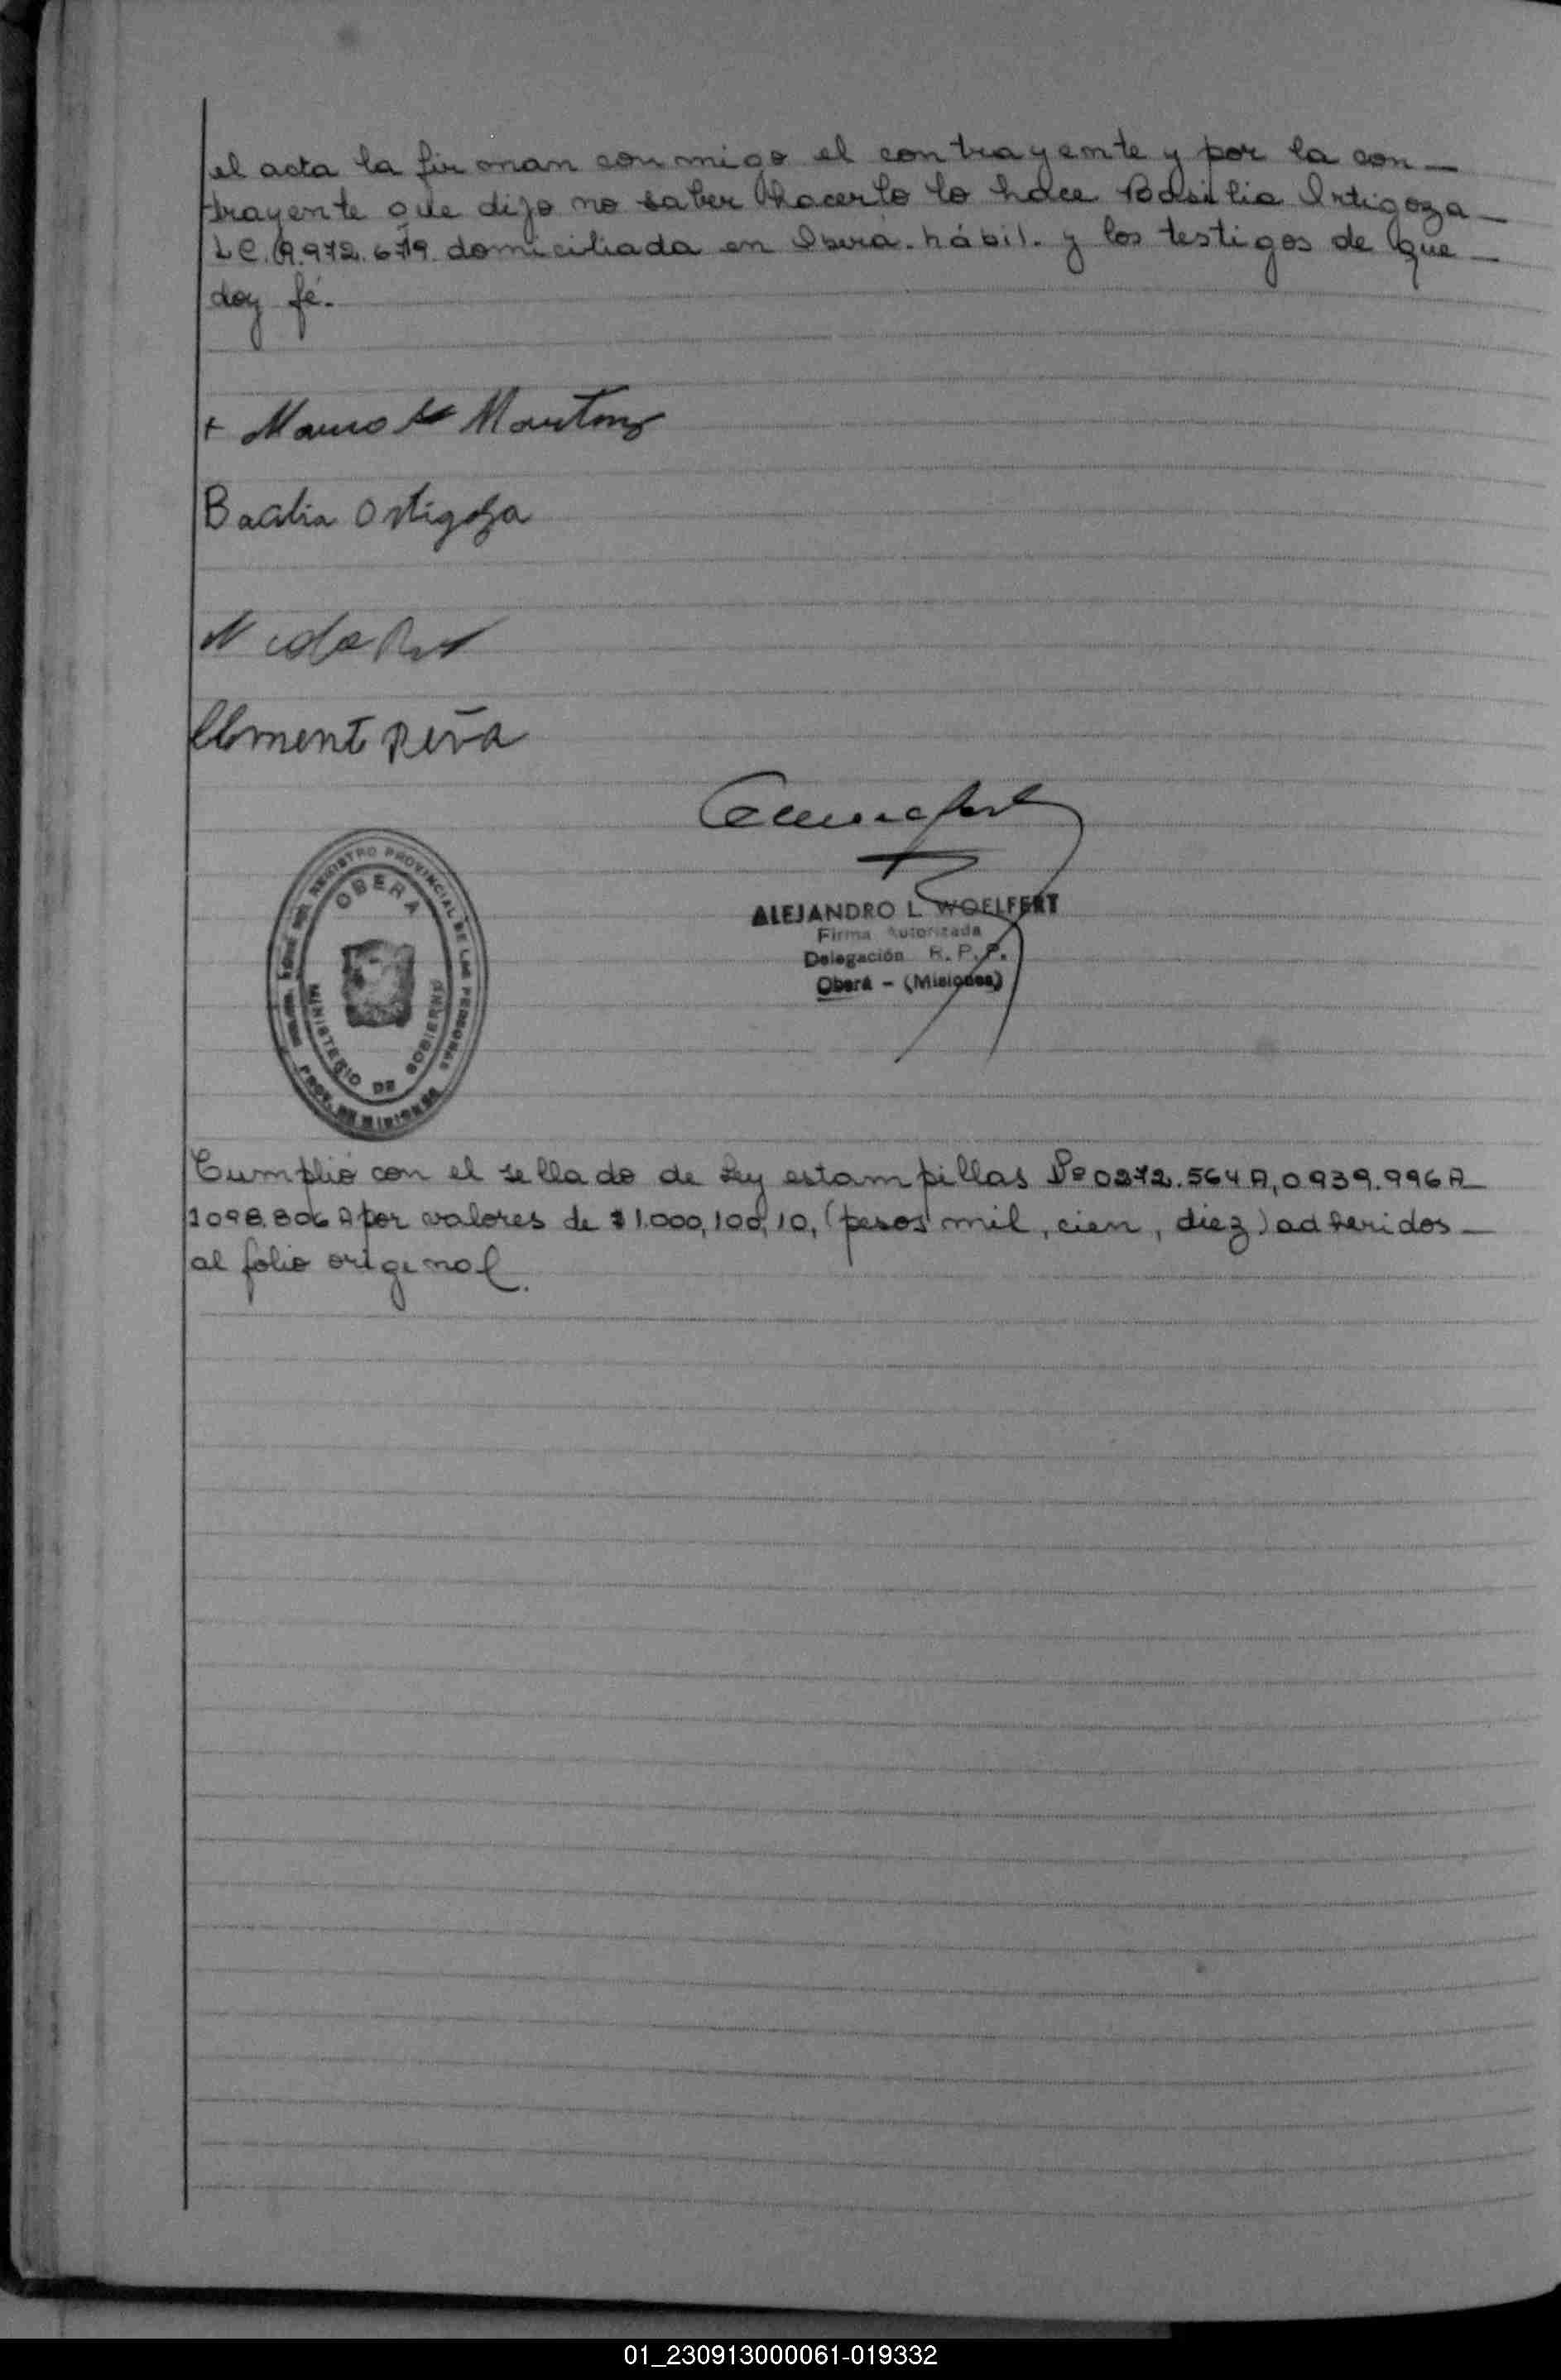 el acta la firman conmigo el contrayente y por la con—
trayente que dijo no saber hacerlo lo hace Basilia Ortigoza—
LC. 9.972.679 domiciliada en Oberá. hábil. y los testigos de que—
doy fé.
+ Mauro Martinz
Bacilia Ortigoza
Clement peña
OBERA
REGISTRO PROVINCIAL DE LAS PERSONAS
MINISTERIO DE GOBIERNO
PROV. DE MISIONES
ALEJANDRO L. WOELFERT
Firma Autorizada
Delegación R. P. P.
Oberá - (Misiones)
Cumplió con el sellado de Ley estampillas Nº 0272.564 A, 0939.996 A—
1098.806 A por valores de $1.000, 100, 10, (pesos mil, cien, diez) adheridos—
al folio original.
01_230913000061-019332